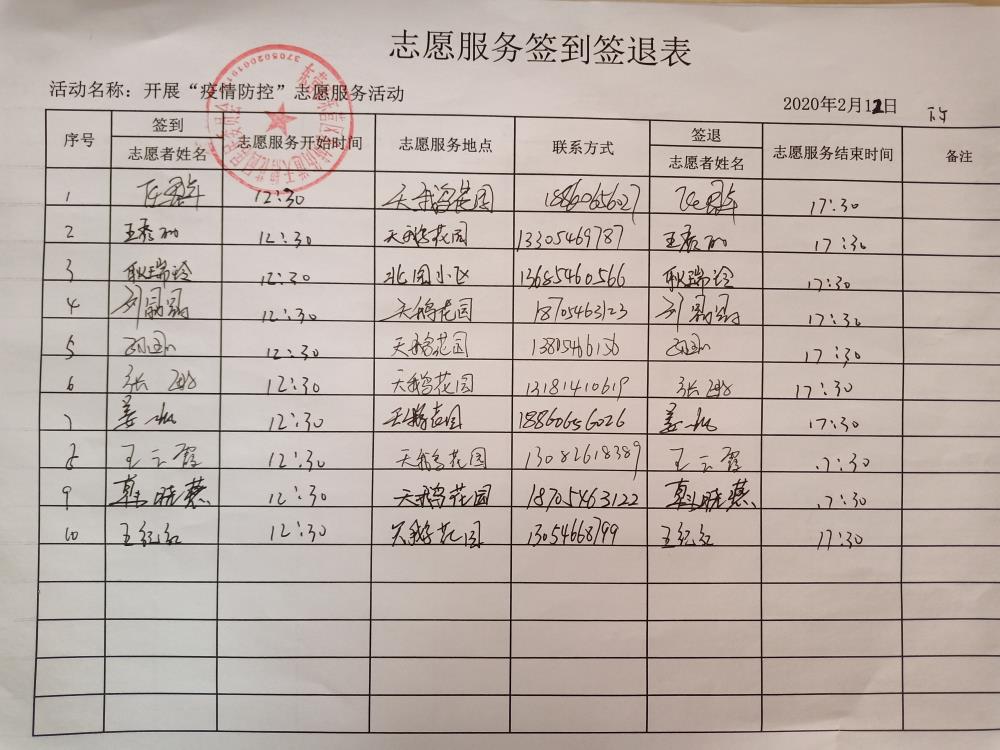 志愿服务签到签退表
活动名称：开展“疫情防控”志愿服务活动
2020年2月12日 下午
序号 签到 志愿服务开始时间 志愿服务地点 联系方式 签退 志愿服务结束时间 备注
志愿者姓名 志愿者姓名
1 12:30 天鹅花园 18860656027 17:30
2 王秀丽 12:30 天鹅花园 13305469787 王秀丽 17:30
3 耿瑞玲 12:30 北园小区 13685460566 耿瑞玲 17:30
4 12:30 天鹅花园 18705463123 17:30
5 12:30 天鹅花园 13805466156 17:30
6 张 12:30 天鹅花园 13181410619 张 17:30
7 姜 12:30 天鹅花园 18860656026 姜 17:30
8 王云霞 12:30 天鹅花园 13082618389 王云霞 17:30
9 韩晓慧 12:30 天鹅花园 18705463122 韩晓慧 17:30
10 王纪红 12:30 天鹅花园 13054668799 王纪红 17:30